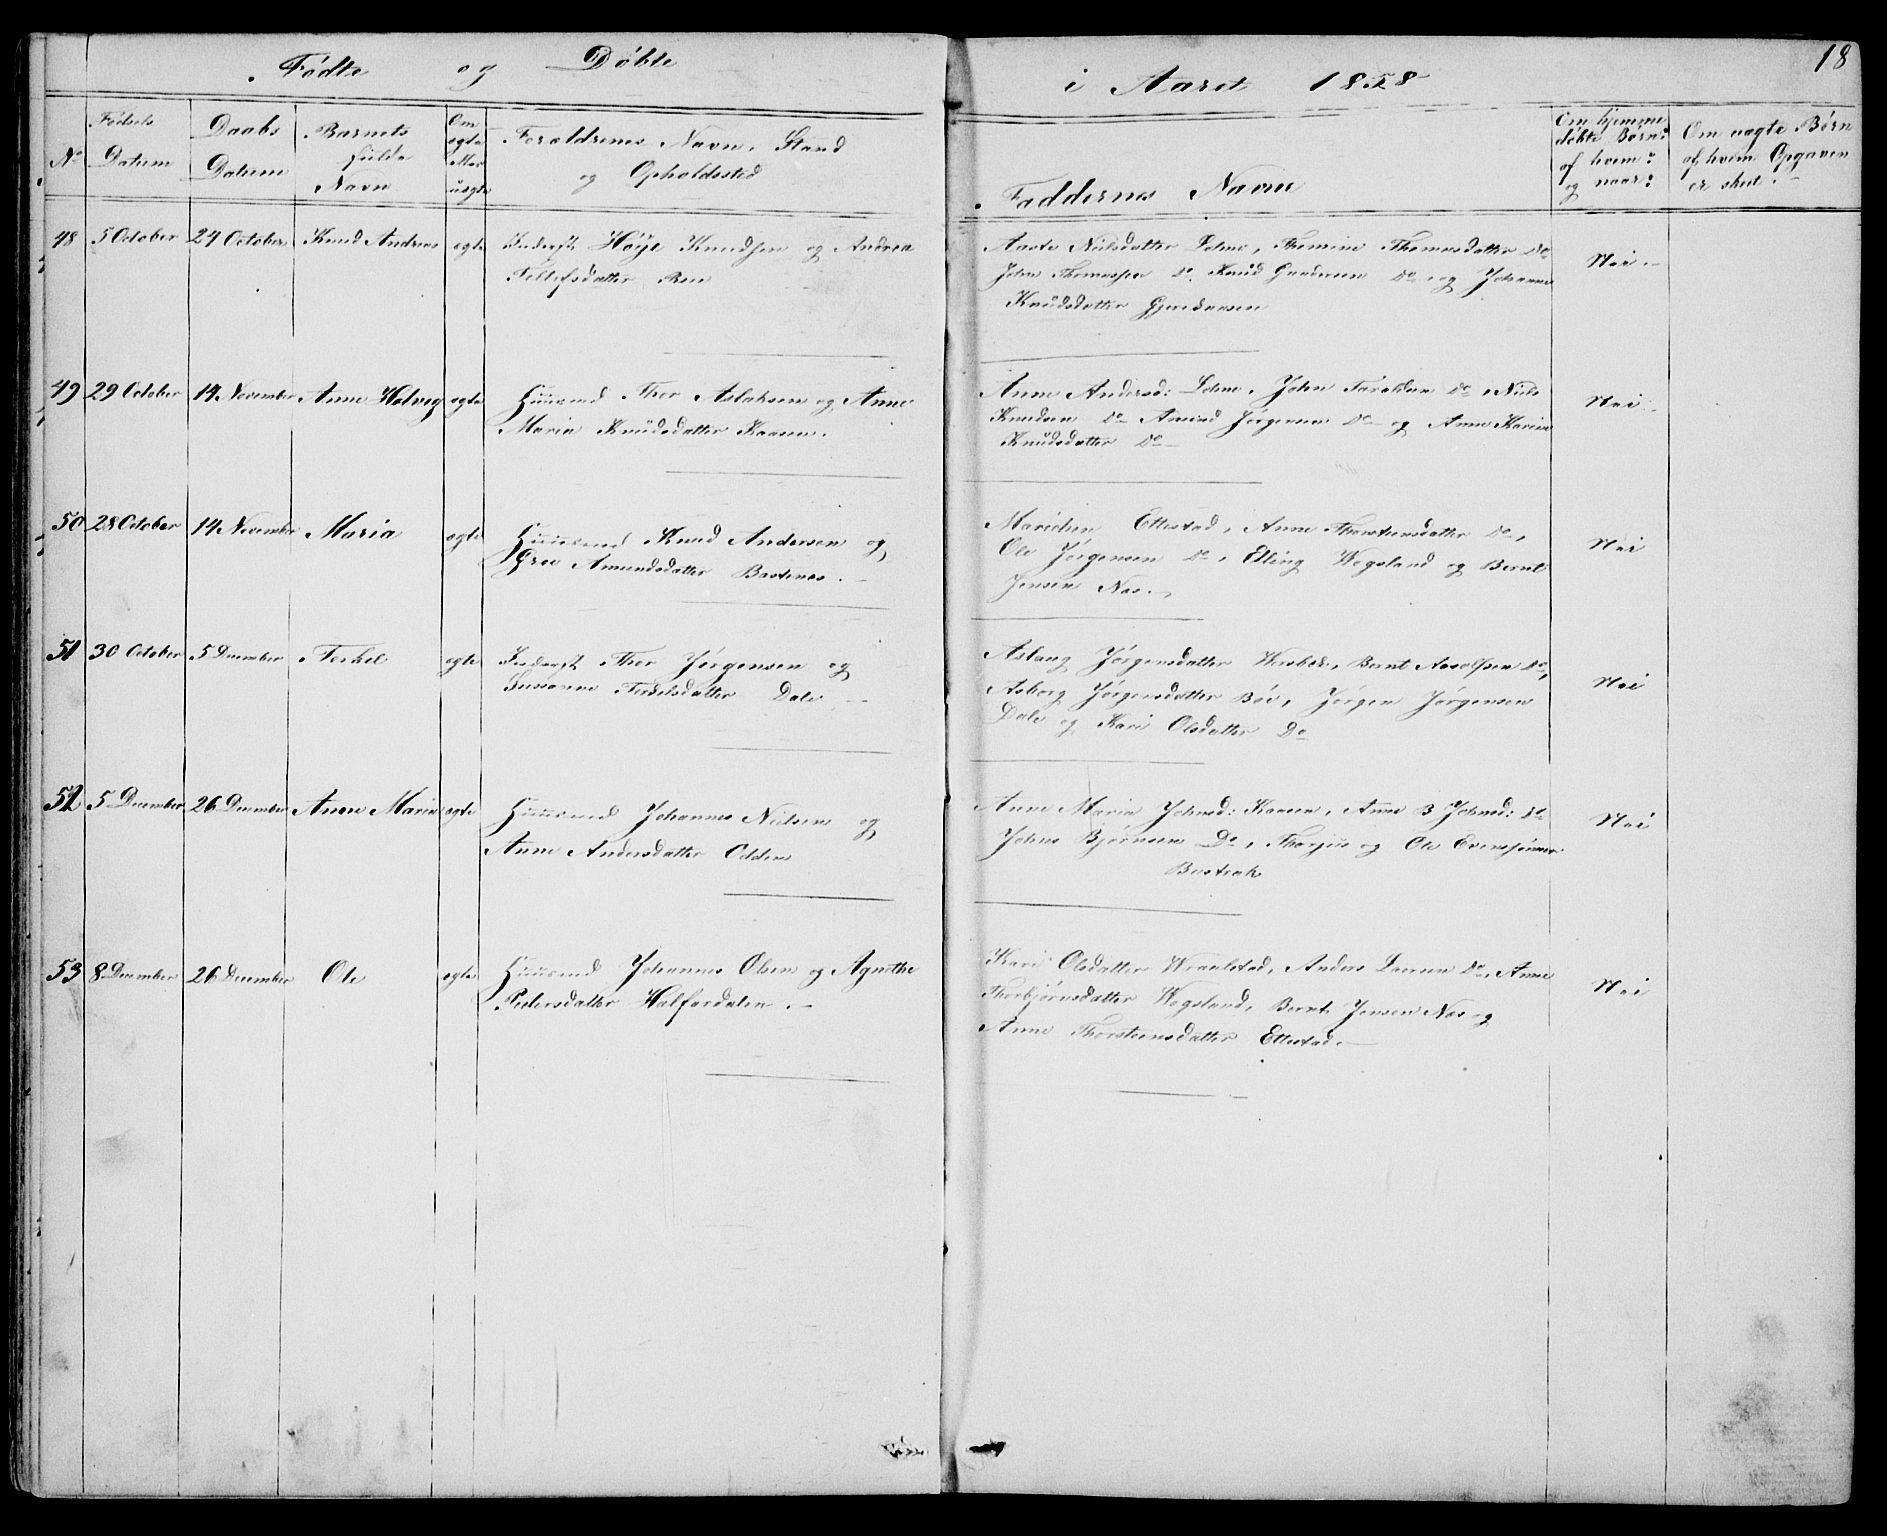 18
Fødte og Døbte i Aaret 1858
No
Fødsels Datum
Daabs Datum
Barnets fulde Navn
Om ægte eller uægte
Forældrenes Navn, Stand
og Opholdssted
Faddernes Navne
Om hjemme døbte Børn: af hvem? og naar?
Om uægte Børn af hvem Opgaven er skeet.
48 5 October 24 October Knud Andreas ægte
Inderst Høye Knudsen og Andrea
Tellefsdatter Roen
Aaste Nielsdatter Thomine Thomasdatter Do
John Thomassen Do Knud Gundersen Do og Johanne
Knudsdatter
Nei
49 29 October 14 November Anne Holvig ægte
Huusmd Thor Aslaksen og Anne
Maria Knudsdatter Kaasen.
Anne Andersd: John Taraldsen Do, Niels
Knudsen Do Amund Jørgensen Do og Anne Karine
Knudsdatter Do
Nei
50 28 October 14 November Maria ægte
Huusmd Knud Andersen og
Groe Amundsdatter Bastenes.
Marichen Ettestad, Anne Thorsteensdatter Do,
Ole Jørgensen Do, Elling Wegsland og Bernt
Jensen Næs.
Nei
51 30 October 5 December Terkel ægte
Inderst Thor Jørgensen og
Susanne Terkelsdatter Dale
Aslaug Jørgensdatter Bernt Do,
Asborg Jørgensdatter Bøe, Jørgen Jørgensen
Dale og Kari Olsdatter Do
Nei
52 5 December 26 December Anne Maria ægte
Huusmd Johannes Nielsen og
Anne Andersdatter Odden
Anne Maria Johnsd: Kaasen, Anne B Johnsd: Do
Johns Bjørnsen Do, Thorjus og Ole Evensønner
Bustrak
Nei
53 8 December 26 December Ole ægte
Huusmd Johannes Olsen og Agnethe
Pedersdatter Halfardalen.
Kari Olsdatter Wraalstad, Anders Larsen Do, Anne
Thorbjørnsdatter Wegsland, Bernt Jensen Næs og
Anne Thorsteensdatter Ettestad.
Nei